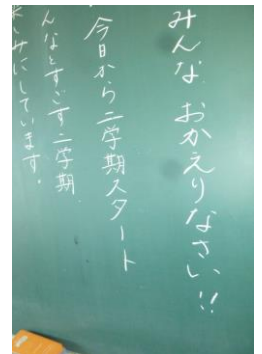 みんな おかえりなさい!!
今日から二学期スタート
んなとすごす二学期
しみにしています。